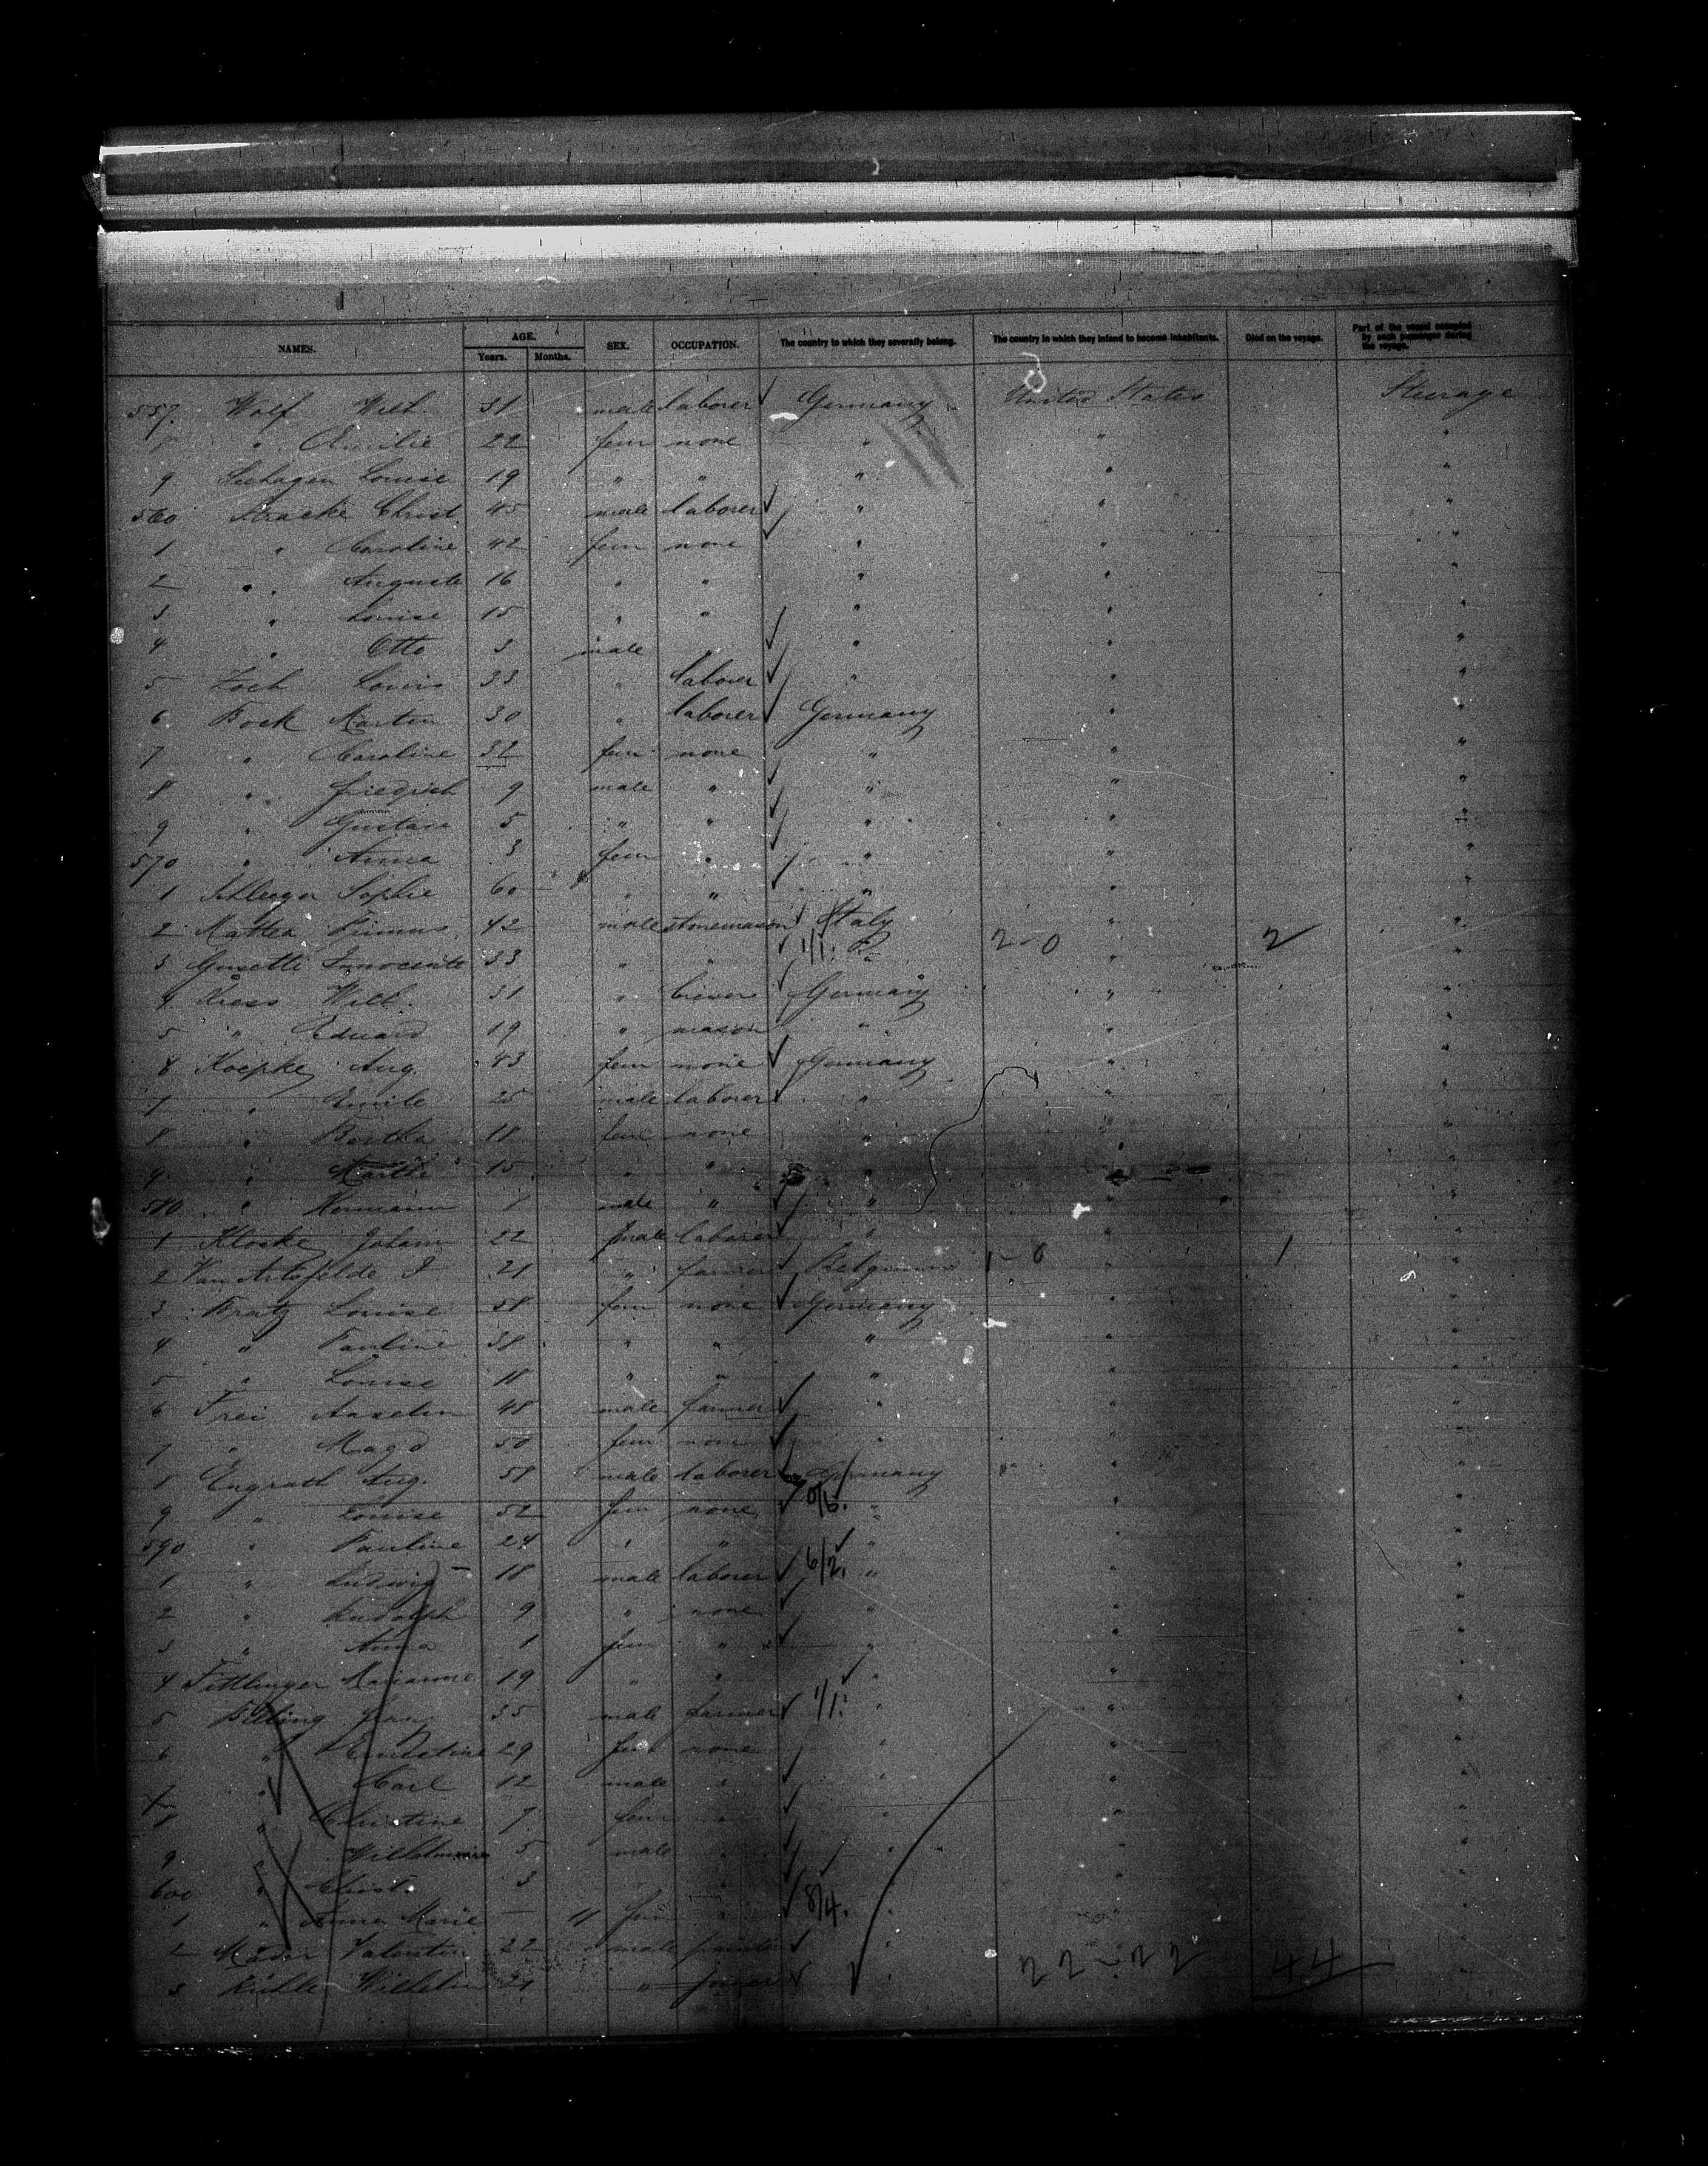 NAMES. AGE. Years. Months. SEX. OCCUPATION. The country to which they severally belong. The country in which they intend to become inhabitants. Died on the voyage. Part of the vessel occupied by each passenger during the voyage.
557 Wolf Wilh. 31 male laborer Germany United States Steerage
8 " Emilie 22 fem none " " "
9 Louise 19 " " " " "
560 Stracke Christ. 45 male laborer " " "
1 " Caroline 42 fem none " " "
2 " Auguste 16 " " " " "
3 " Louise 15 " " " " "
4 " Otto 3 male " " "
5 Zoch Louis 33 " laborer " " "
6 Bock Martin 30 " laborer Germany " "
7 " Caroline 32 fem none " " "
8 " Friedrich 9 male " " " "
9 " Gustav 5 " " " " "
570 " Anna 3 fem " " " "
1 Sophie 60 " " " " "
2 Mattea Primus 42 male stonemason Italy " "
1/1. 2-0 2
3 Gosetti Innocente 33 " " " " "
4 Kress Wilh. 31 " Germany " "
5 " Eduard 19 " mason " " "
8 Koepke Aug. 43 fem none Germany " "
7 " Emile 25 male laborer " " "
8 " Bertha 18 fem none " " "
9 " Marth 15 " " " " "
580 " Hermann 1 male " " " "
1 Kloske Johann 22 male laborer " " "
1-0 1
2 Van Artefelde J 21 " farmer Belgium " "
3 Bratz Louise 58 fem none Germany " "
4 " Pauline 38 " " " " "
5 " Louise 18 " " " " "
6 Frei Anselm 48 male farmer " " "
7 " Magd 50 fem none " " "
8 Engrath Aug. 58 male laborer Germany " "
9 " Louise 52 fem none 0/6. " " "
590 " Pauline 24 " " " " "
1 " Ludwig 18 male laborer 6/2. " " "
2 " Rudolph 9 " none " " "
3 " Anna 1 fem " " " "
4 Fittlinger Marianne 19 " " " " "
5 Billing 35 male farmer 1/1. " " "
6 " Ernestine 29 fem none " " "
7 " Carl 12 male " " " "
8 " Christine 7 fem " " " "
9 " 5 male " " " "
600 " Christ. 3 " "
1 " Anna Marie — 11 fem " 8/4. " " "
2 Valentin 22 male painter " " "
22-22 44
3 Wilhelm 24 " " "